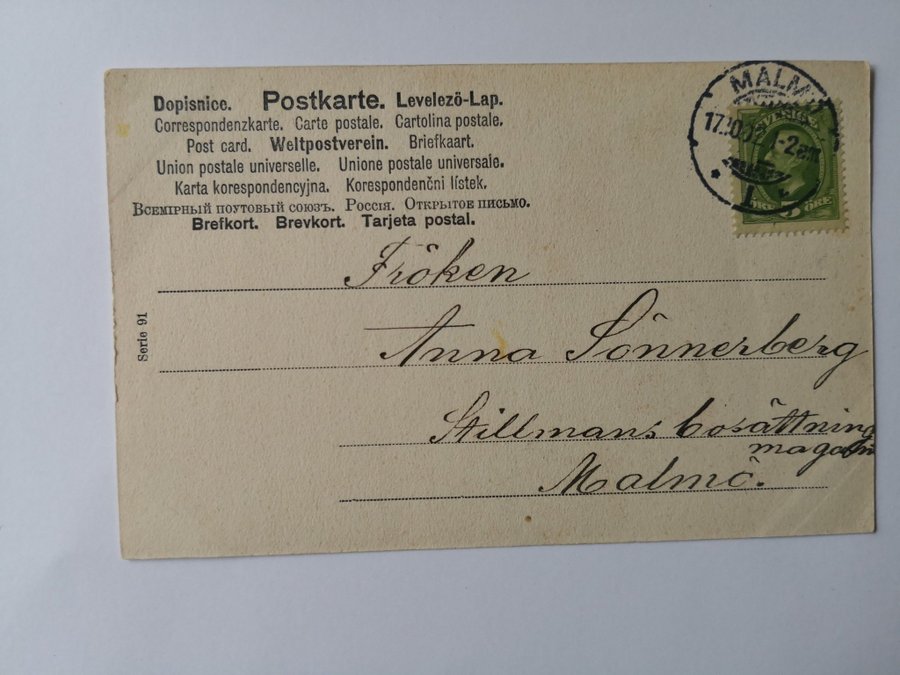 Dopisnice. Postkarte. Levelezö-Lap.
Correspondenzkarte. Carte postale. Cartolina postale.
Post card. Weltpostverein. Briefkaart.
Union postale universelle. Unione postale universale.
Karta korespondencyjna. Korespondenčni listek.
Всемірный поутовый союзъ. Россія. Открытое письмо.
Brefkort. Brevkort. Tarjeta postal.
MALM
ÖRE
Fröken
Anna Sönnerberg
Stillmans bosättning
magasin
Malmö.
Serie 91